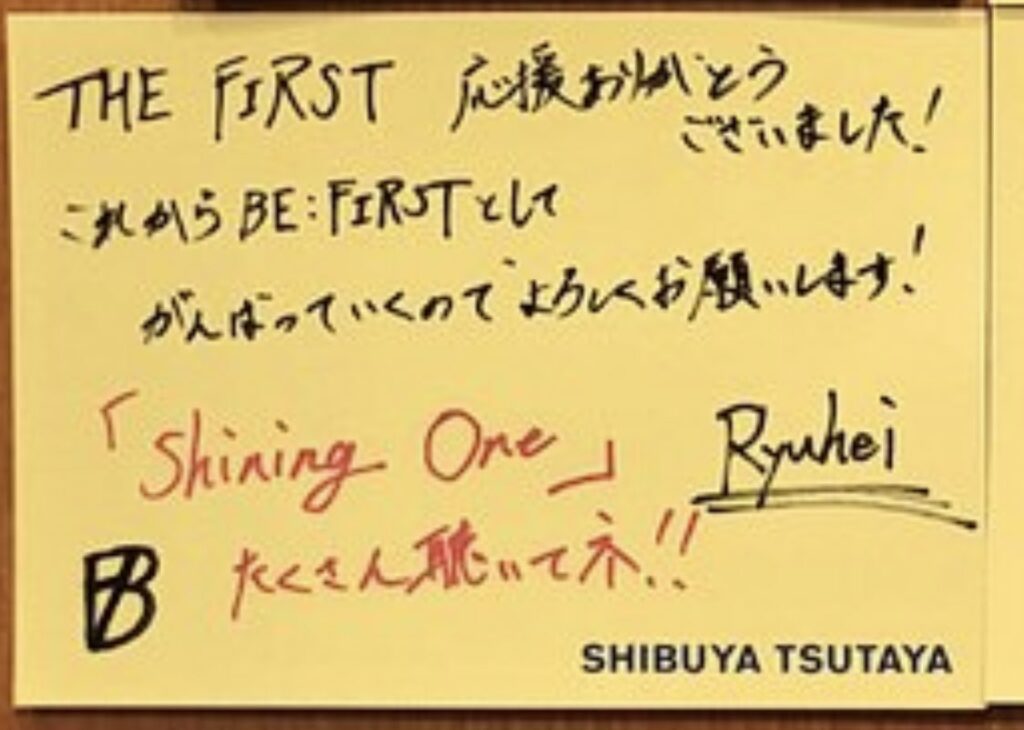 THE FIRST 応援ありがとう
ございました!
これから BE:FIRSTとして
がんばっていくのでよろしくお願いします!
「Shining One」
Ryuhei
たくさん聴いてネ!!
B
SHIBUYA TSUTAYA